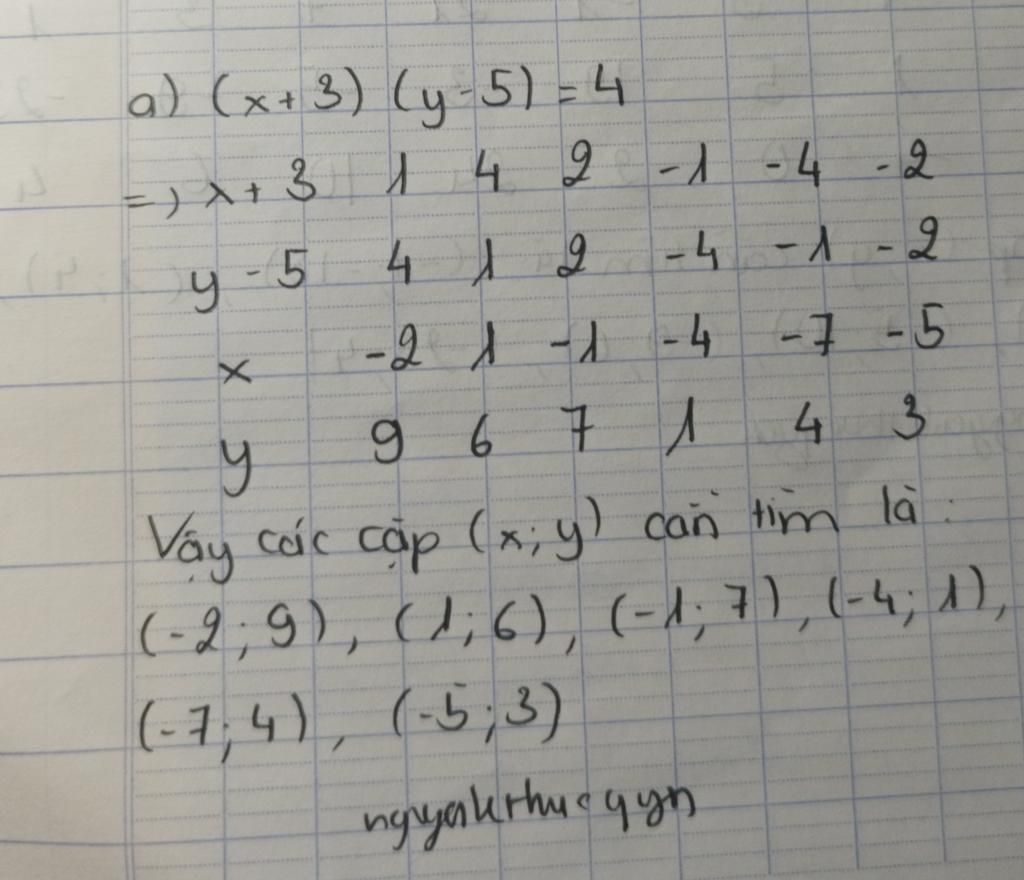 a) (x+3) (y-5) = 4
=> x+3 1 4 2 -1 -4 -2
y-5 4 1 2 -4 -1 -2
x -2 1 -1 -4 -7 -5
y 9 6 7 1 4 3
Vậy các cặp (x;y) cần tìm là:
(-2;9), (1;6), (-1;7), (-4;1),
(-7;4), (-5;3)